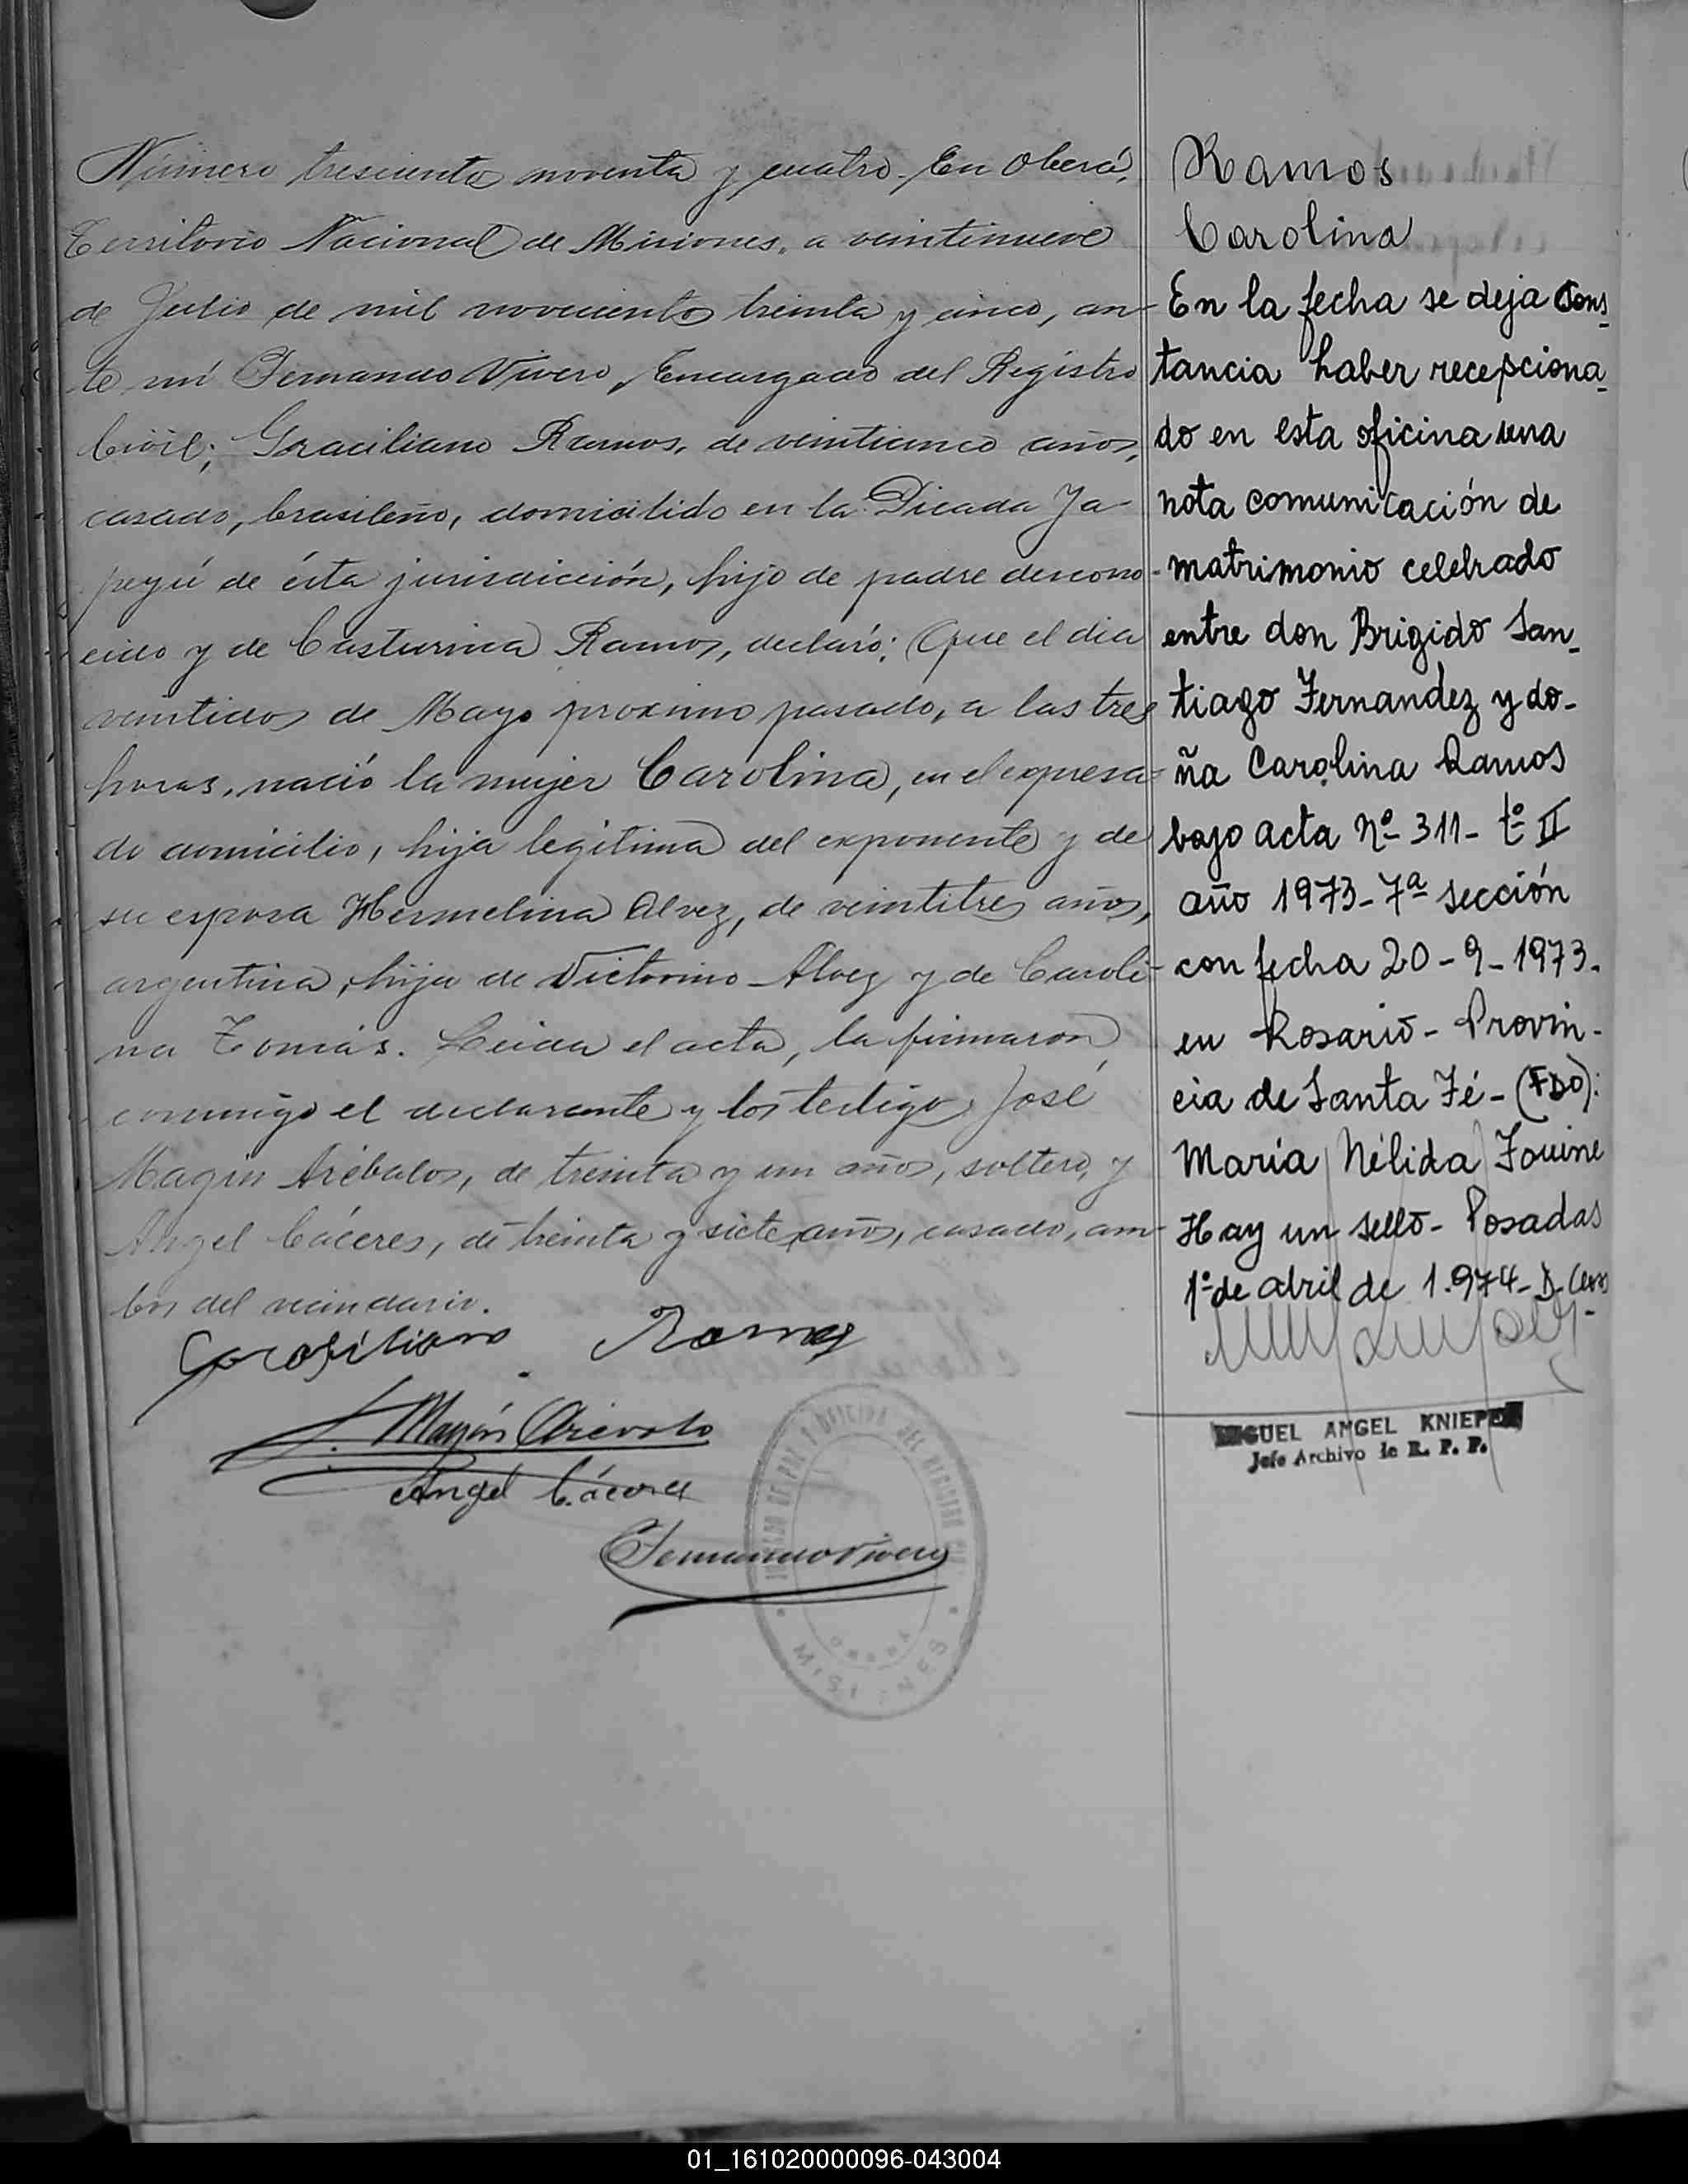 Número trescientos noventa y cuatro. En Oberá,
Territorio Nacional de Misiones, a veintinueve
de Julio de mil novecientos treinta y cinco, an-
te mí Fernando Vivero, Encargado del Registro
Civil; Graciliano Ramos, de veinticinco años,
casado, brasileño, domicilido en la Picada Ya-
peyú de ésta jurisdicción, hijo de padre descono-
cido y de Casturina Ramos, declaró: Que el dia
veintidos de Mayo proximo pasado, a las tres
horas, nació la mujer Carolina, en el expresa-
do domicilio, hija legítima del exponente y de
su esposa Hermelina Alvez, de veintitres años,
argentina, hija de Victorino Alvez y de Caroli-
na Tomás. Leida el acta, la firmaron
conmigo el declarante y los testigos José
Magin Arébalos, de treinta y un años, soltero, y
Angel Cáceres, de treinta y siete años, casado, am-
bos del vecindario.
Ramos
J. Magín Arevalo
Angel Cáceres
Fernando Vivero
MISIONES
Ramos
Carolina
En la fecha se deja cons-
tancia haber recepciona-
do en esta oficina una
nota comunicación de
matrimonio celebrado
entre don Brigido San-
tiago Fernandez y do-
ña Carolina Ramos
bajo acta Nº 311- tº II
año 1973- 7ª sección
con fecha 20-9-1973.
en Rosario- Provin-
cia de Santa Fé- (FDO):
María Nélida
Hay un sello- Posadas
1º de abril de 1.974-
MIGUEL ANGEL KNIEPE
Jefe Archivo de R. P. P.
01_161020000096-043004